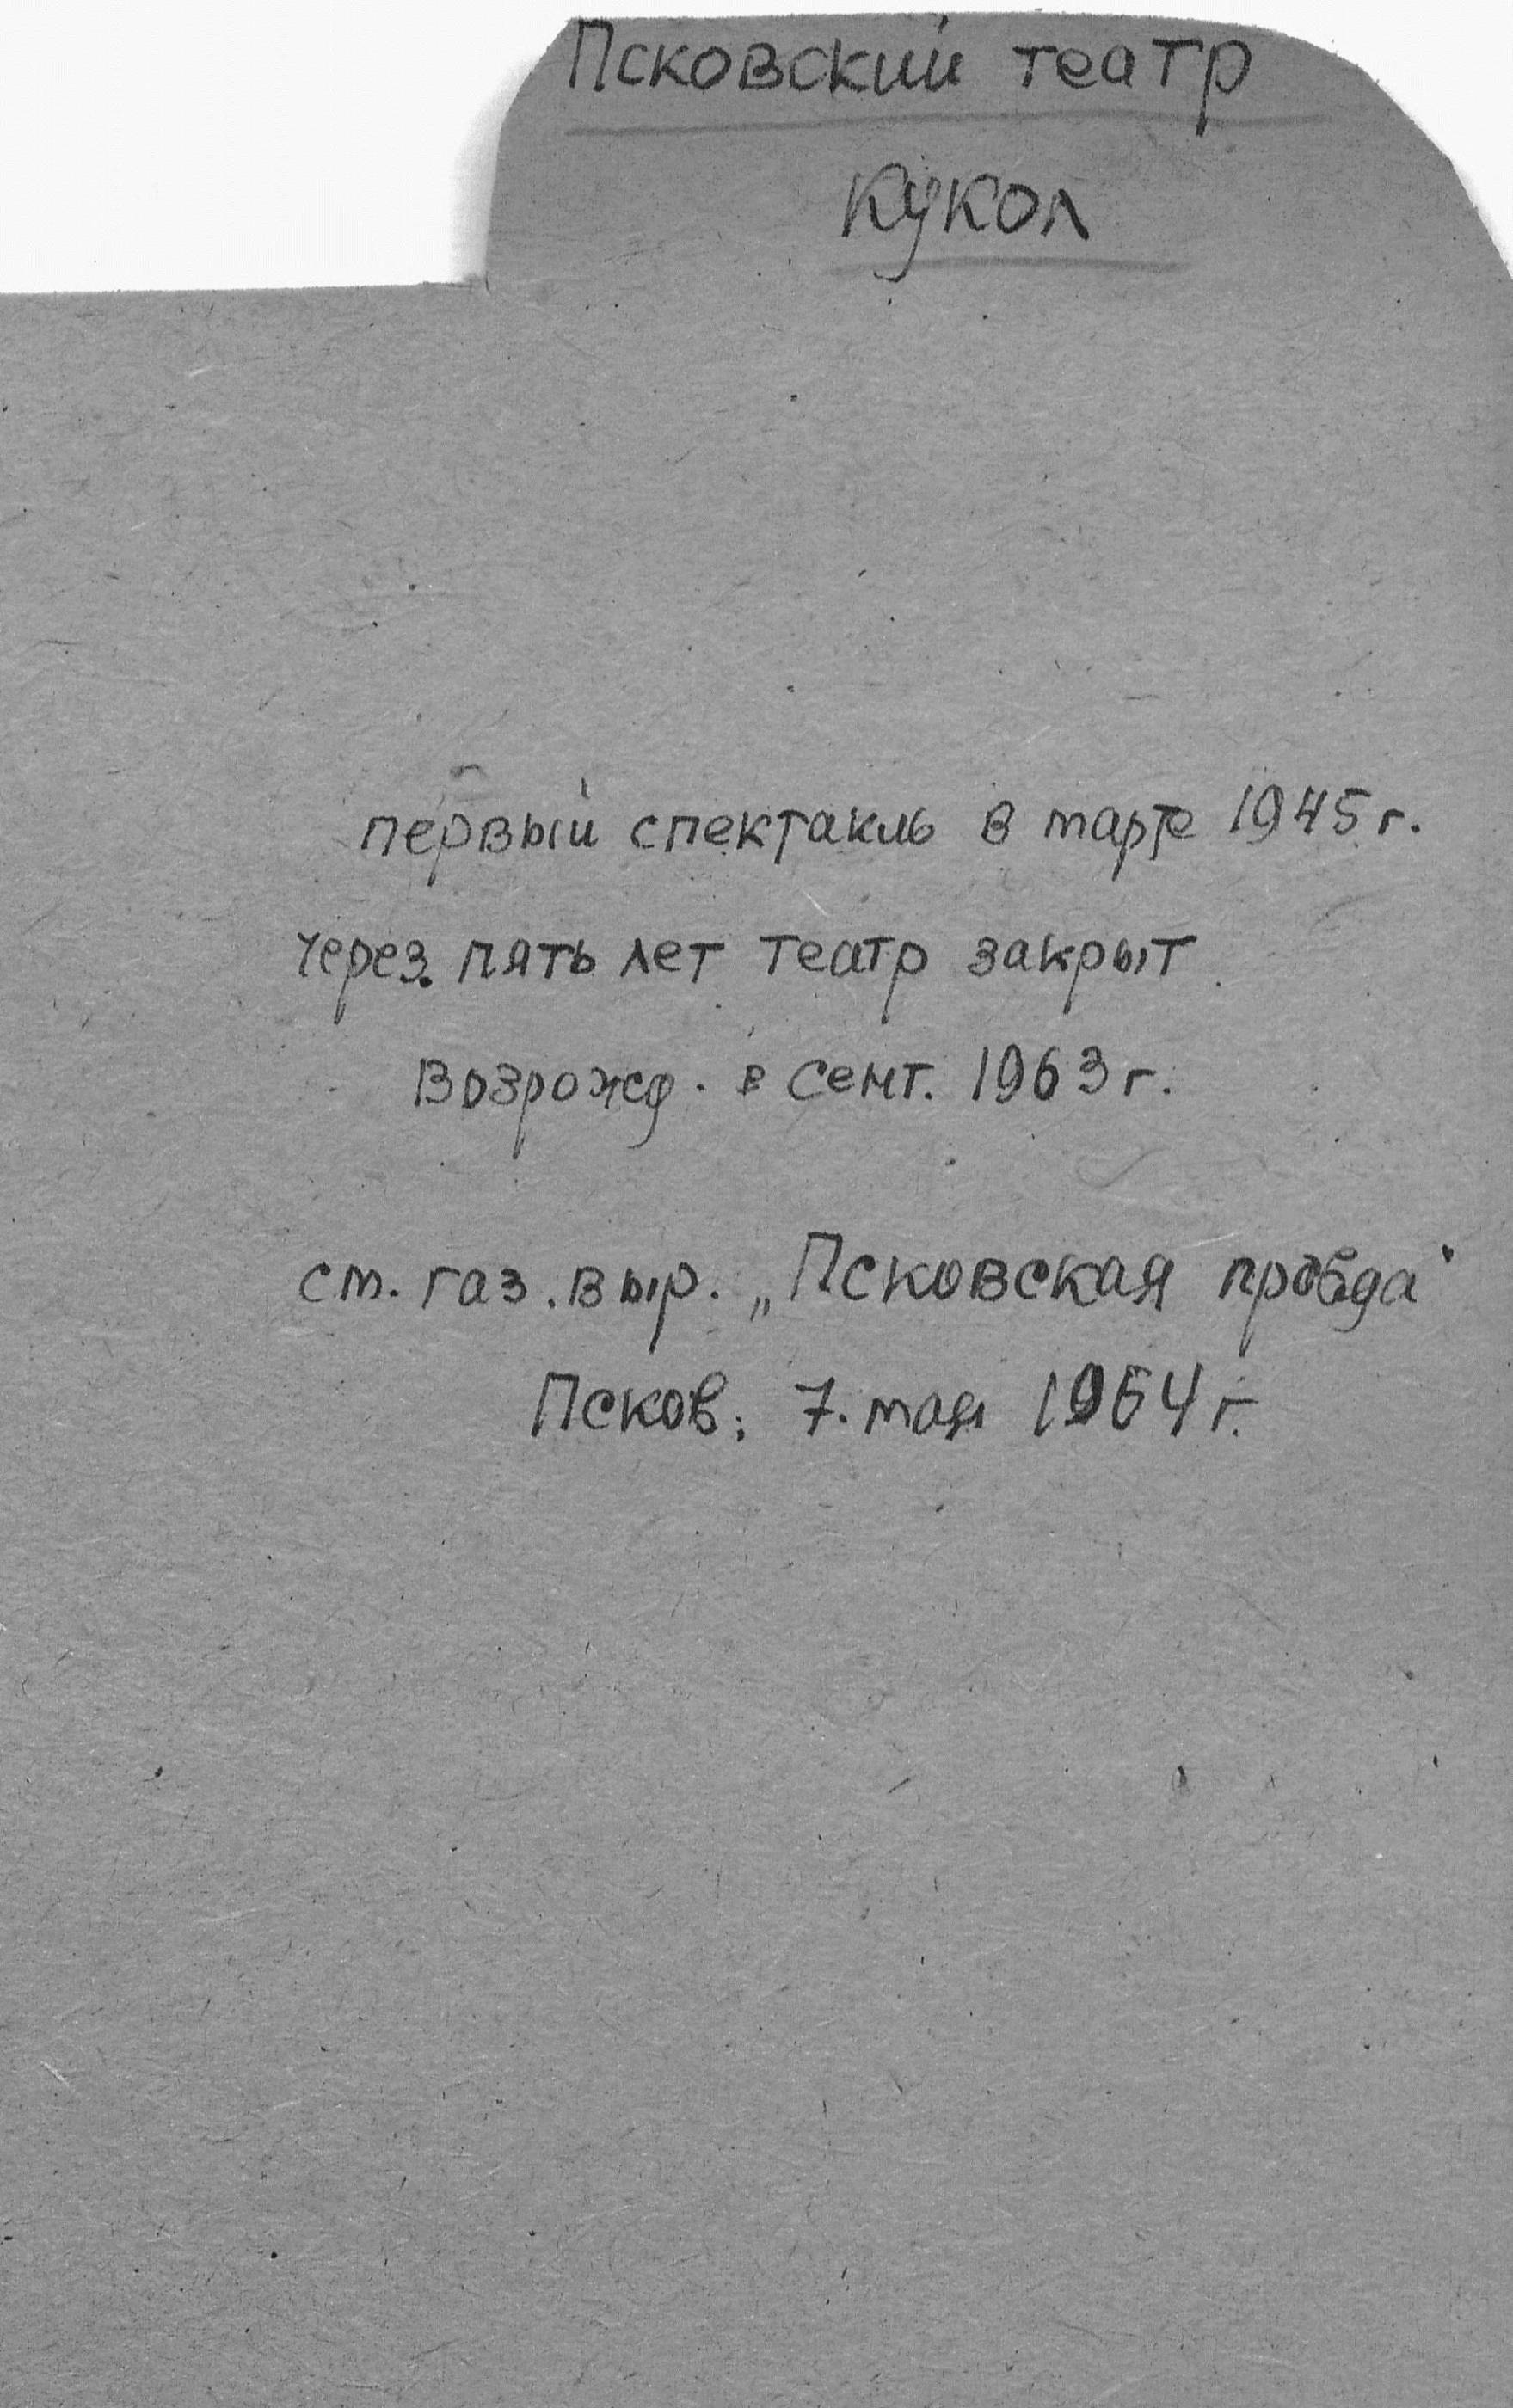 Псковский театр
кукол
первый спектакль в марте 1945 г.
через пять лет театр закрыт
Возрожд. в сент. 1963 г.
см. газ. выр. „Псковская правда"
Псков. 7. мая 1964 г.